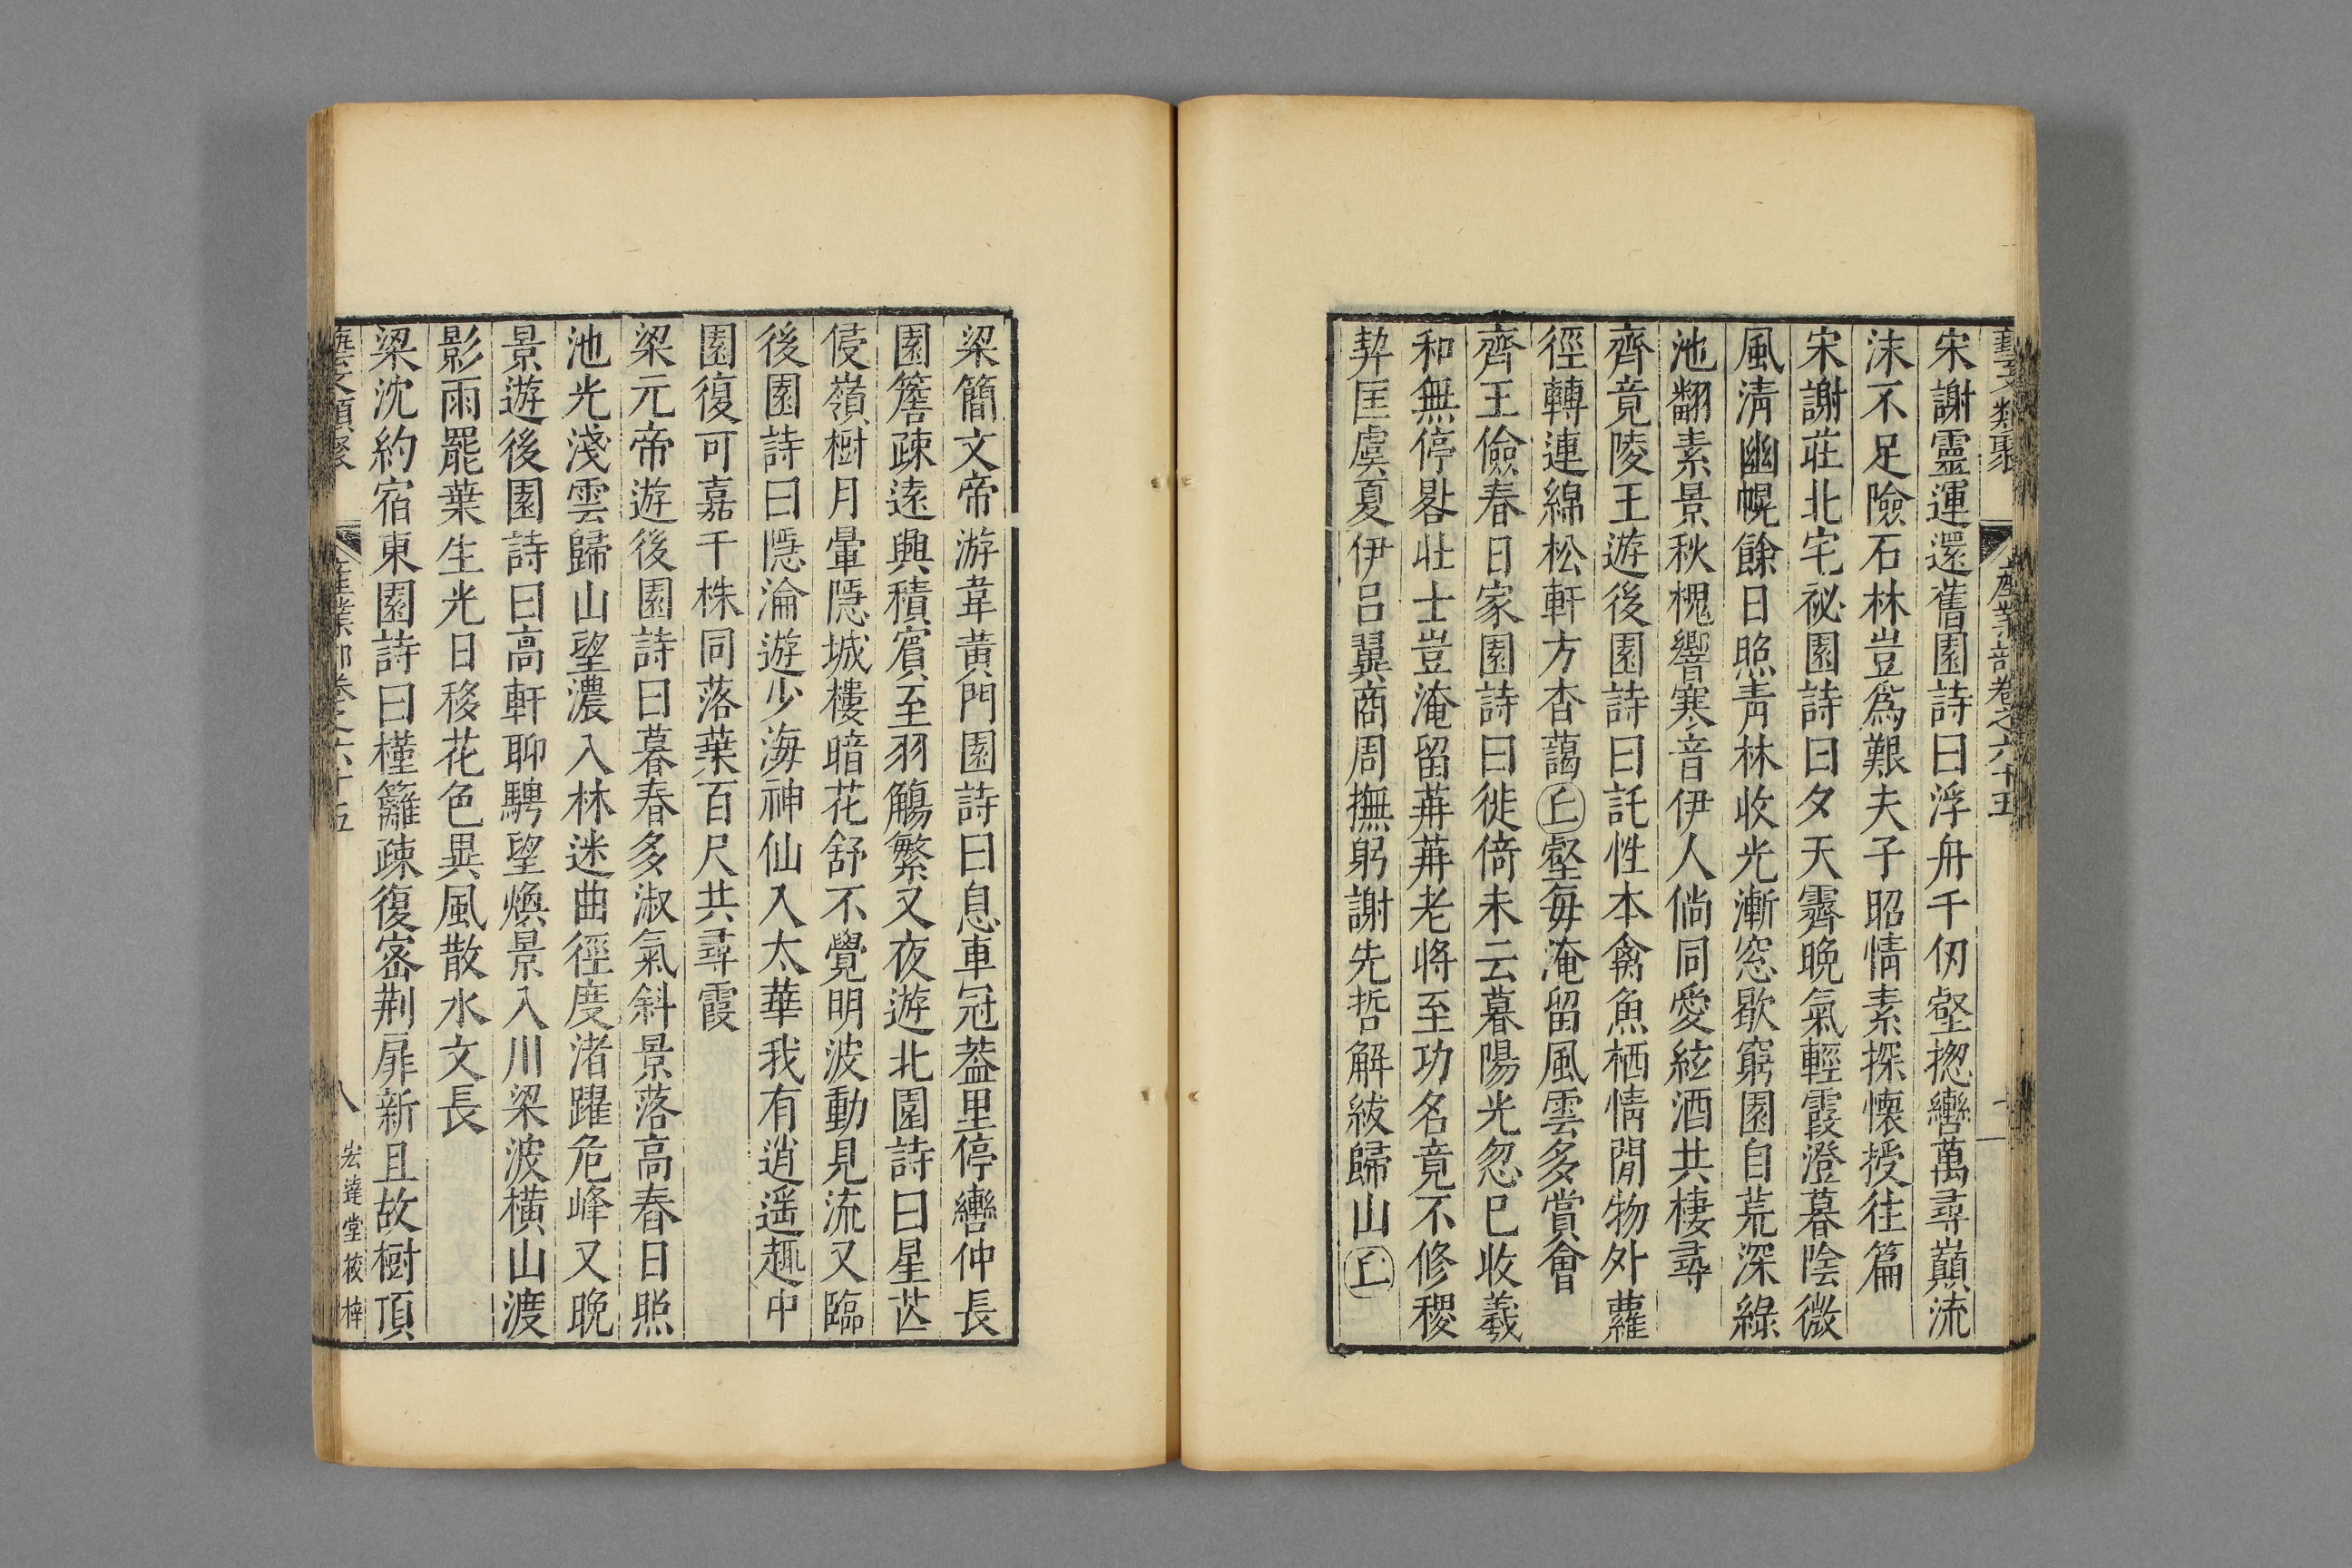 藝文類聚 產業部卷之六十五
宋謝靈運還舊園詩曰浮舟千仞壑揔轡萬尋巔流
沫不足險石林豈爲艱夫子昭情素探懷授往篇
宋謝莊北宅祕園詩曰夕天霽晚氣輕霞澄暮陰微
風清幽幌餘日照青林收光漸窓歇窮園自荒深綠
池翻素景秋槐響寒音伊人倘同愛絃酒共棲尋
齊竟陵王遊後園詩曰託性本禽魚栖情閒物外蘿
徑轉連綿松軒方杳藹丘壑每淹留風雲多賞會
齊王儉春日家園詩曰徙倚未云暮陽光忽已收羲
和無停晷壯士豈淹留苒苒老將至功名竟不修稷
契匡虞夏伊呂翼商周撫躬謝先哲解紱歸山丘
梁簡文帝游韋黃門園詩曰息車冠蓋里停轡仲長
園簷疎遠興積賓至羽觴繁又夜遊北園詩曰星芒
侵嶺樹月暈隱城樓暗花舒不覺明波動見流又臨
後園詩曰隱淪遊少海神仙入太華我有逍遥趣中
園復可嘉千株同落葉百尺共尋霞
梁元帝遊後園詩曰暮春多淑氣斜景落高春日照
池光淺雲歸山望濃入林迷曲徑度渚躍危峰又晚
景遊後園詩曰高軒聊騁望煥景入川梁波橫山渡
影雨罷葉生光日移花色異風散水文長
梁沈約宿東園詩曰槿籬疎復密荆扉新且故樹頂
藝文類聚 產業部卷之六十五 八 宏達堂校梓